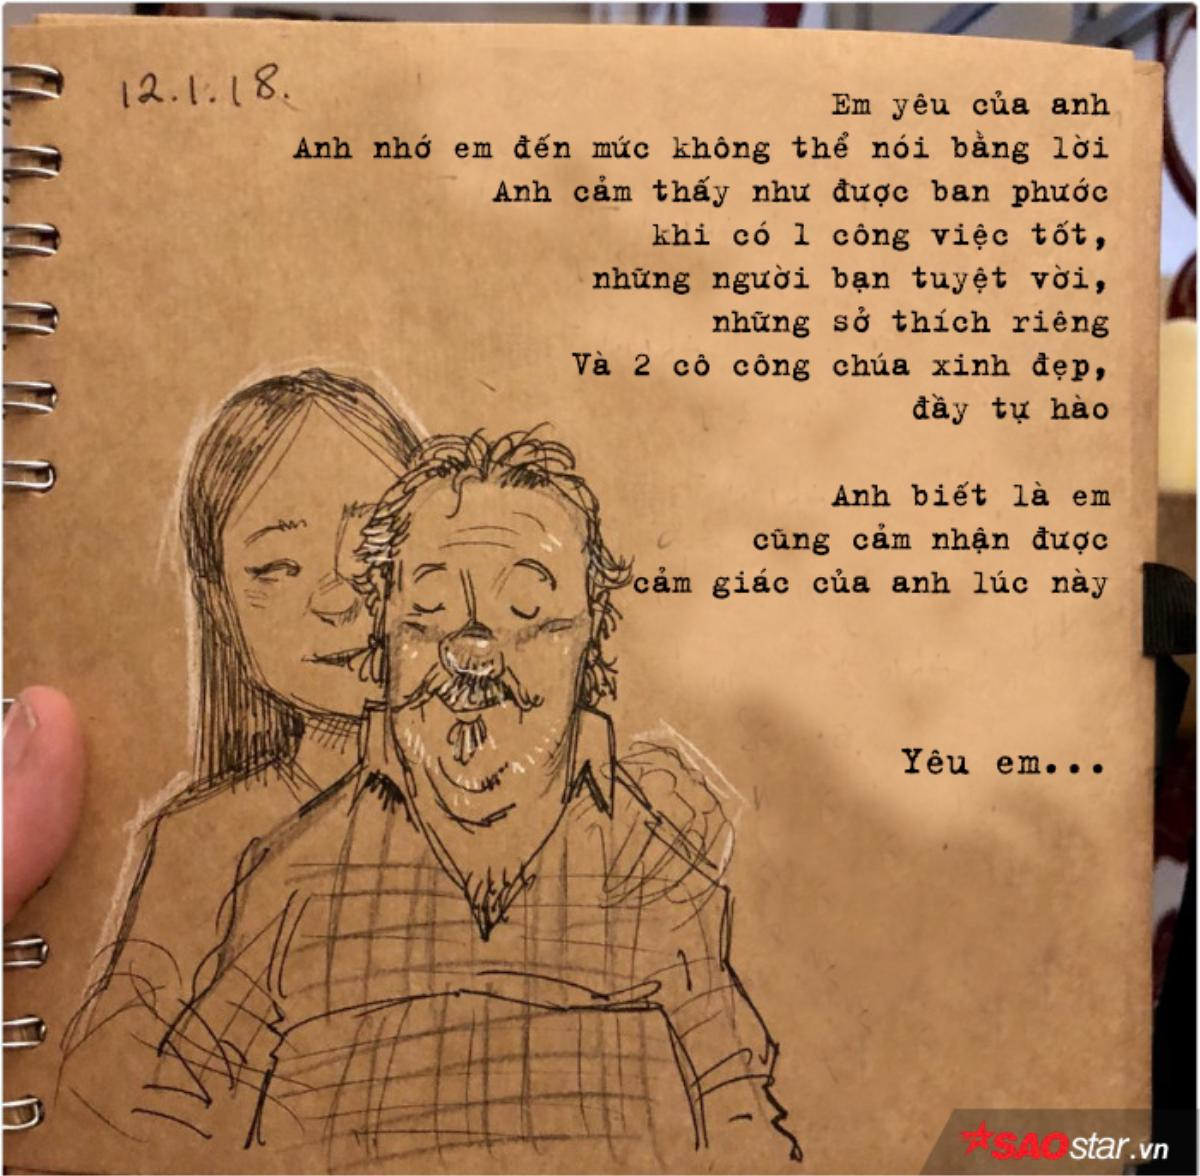 12.1.18.
Em yêu của anh
Anh nhớ em đến mức không thể nói bằng lời
Anh cảm thấy như được ban phước
khi có 1 công việc tốt,
những người bạn tuyệt vời,
những sở thích riêng
Và 2 cô công chúa xinh đẹp,
đầy tự hào
Anh biết là em
cũng cảm nhận được
cảm giác của anh lúc này
Yêu em...
SAOstar.vn